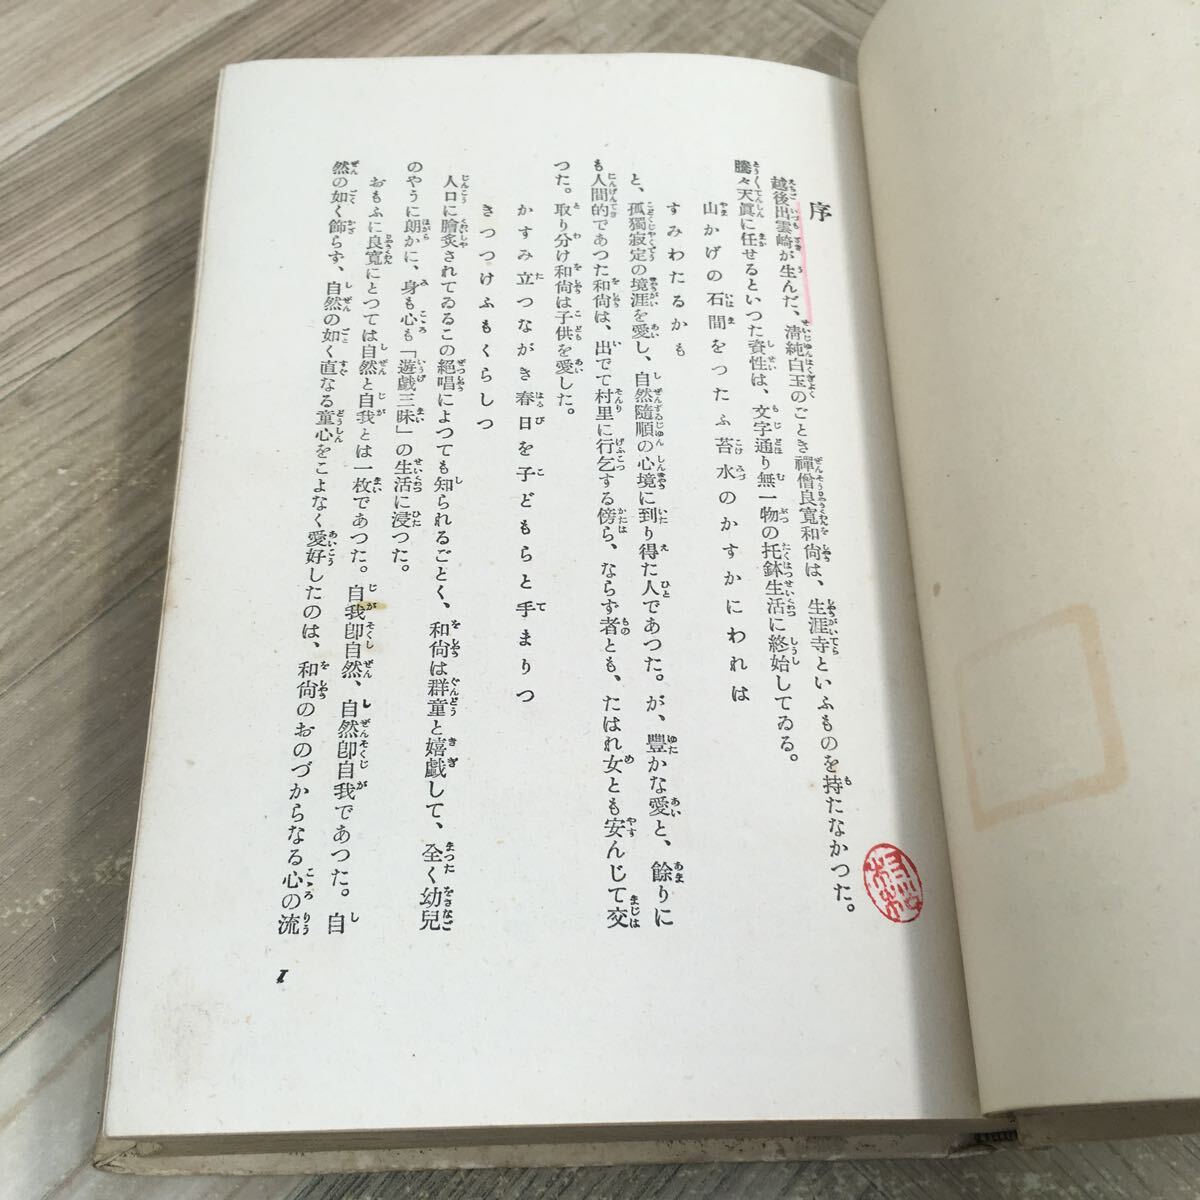 序
越後出雲崎が生んだ、淸純白玉のごとき禪僧良寬和尙は、生涯寺といふものを持たなかつた。
騰々天眞に任せるといつた資性は、文字通り無一物の托鉢生活に終始してゐる。
山かげの石間をつたふ苔水のかすかにわれは
すみわたるかも
と、孤獨寂定の境涯を愛し、自然隨順の心境に到り得た人であつた。が、豐かな愛と、餘りに
も人間的であつた和尙は、出でて村里に行乞する傍ら、ならず者とも、たはれ女とも安んじて交
つた。取り分け和尙は子供を愛した。
かすみ立つながき春日を子どもらと手まりつ
きつつけふもくらしつ
人口に膾炙されてゐるこの絕唱によつても知られるごとく、和尙は群童と嬉戲して、全く幼兒
のやうに朗かに、身も心も「遊戲三昧」の生活に浸つた。
おもふに良寬にとつては自然と自我とは一枚であつた。自我卽自然、自然卽自我であつた。自
然の如く飾らず、自然の如く直なる童心をこよなく愛好したのは、和尙のおのづからなる心の流
1